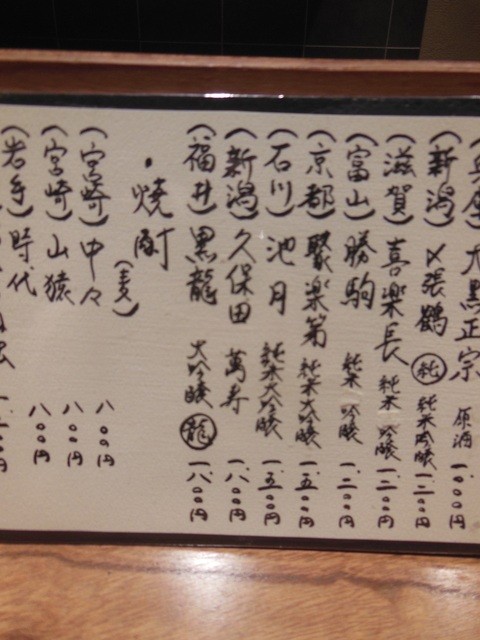 (兵庫) 大黒正宗 原酒 一、〇〇〇円
(新潟) 〆張鶴 純 純米吟醸 一、二〇〇円
(滋賀) 喜楽長 純米吟醸 一、二〇〇円
(富山) 勝駒 純米吟醸 一、二〇〇円
(京都) 聚楽菊 純米大吟醸 一、五〇〇円
(石川) 池月 純米大吟醸 一、五〇〇円
(新潟) 久保田 萬寿 一、八〇〇円
(福井) 黒龍 大吟醸 龍 一、八〇〇円
・焼酎
(麦)
(宮崎) 中々 八〇〇円
(宮崎) 山猿 八〇〇円
(岩手) 時代 八〇〇円